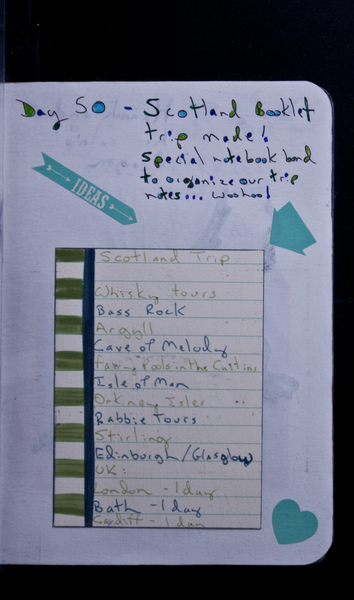 Day 50 - Scotland Booklet
trip made!
Special notebook bond
to organize our trip
notes... woohoo!
IDEAS
Scotland Trip
Whisky Tours
Bass Rock
Argyll
Cave of Melody
Fairy Pools in the Cuillins
Isle of Man
Orkney Isles
Rabbie Tours
Stirling
Edinburgh/Glasgow
UK:
London - 1 day
Bath - 1 day
Cardiff - 1 day